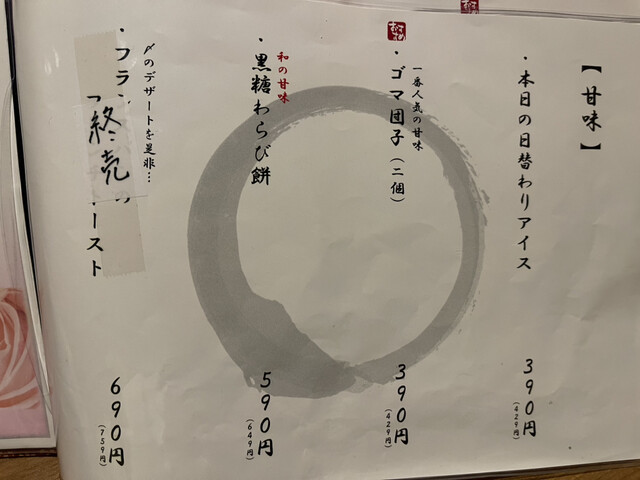 【甘味】
・本日の日替わりアイス
390円
(429円)
一番人気の甘味
・ゴマ団子(二個)
390円
(429円)
和の甘味
・黒糖わらび餅
590円
(649円)
〆のデザートを是非…
・フラ
終売
の
ースト
690円
(759円)